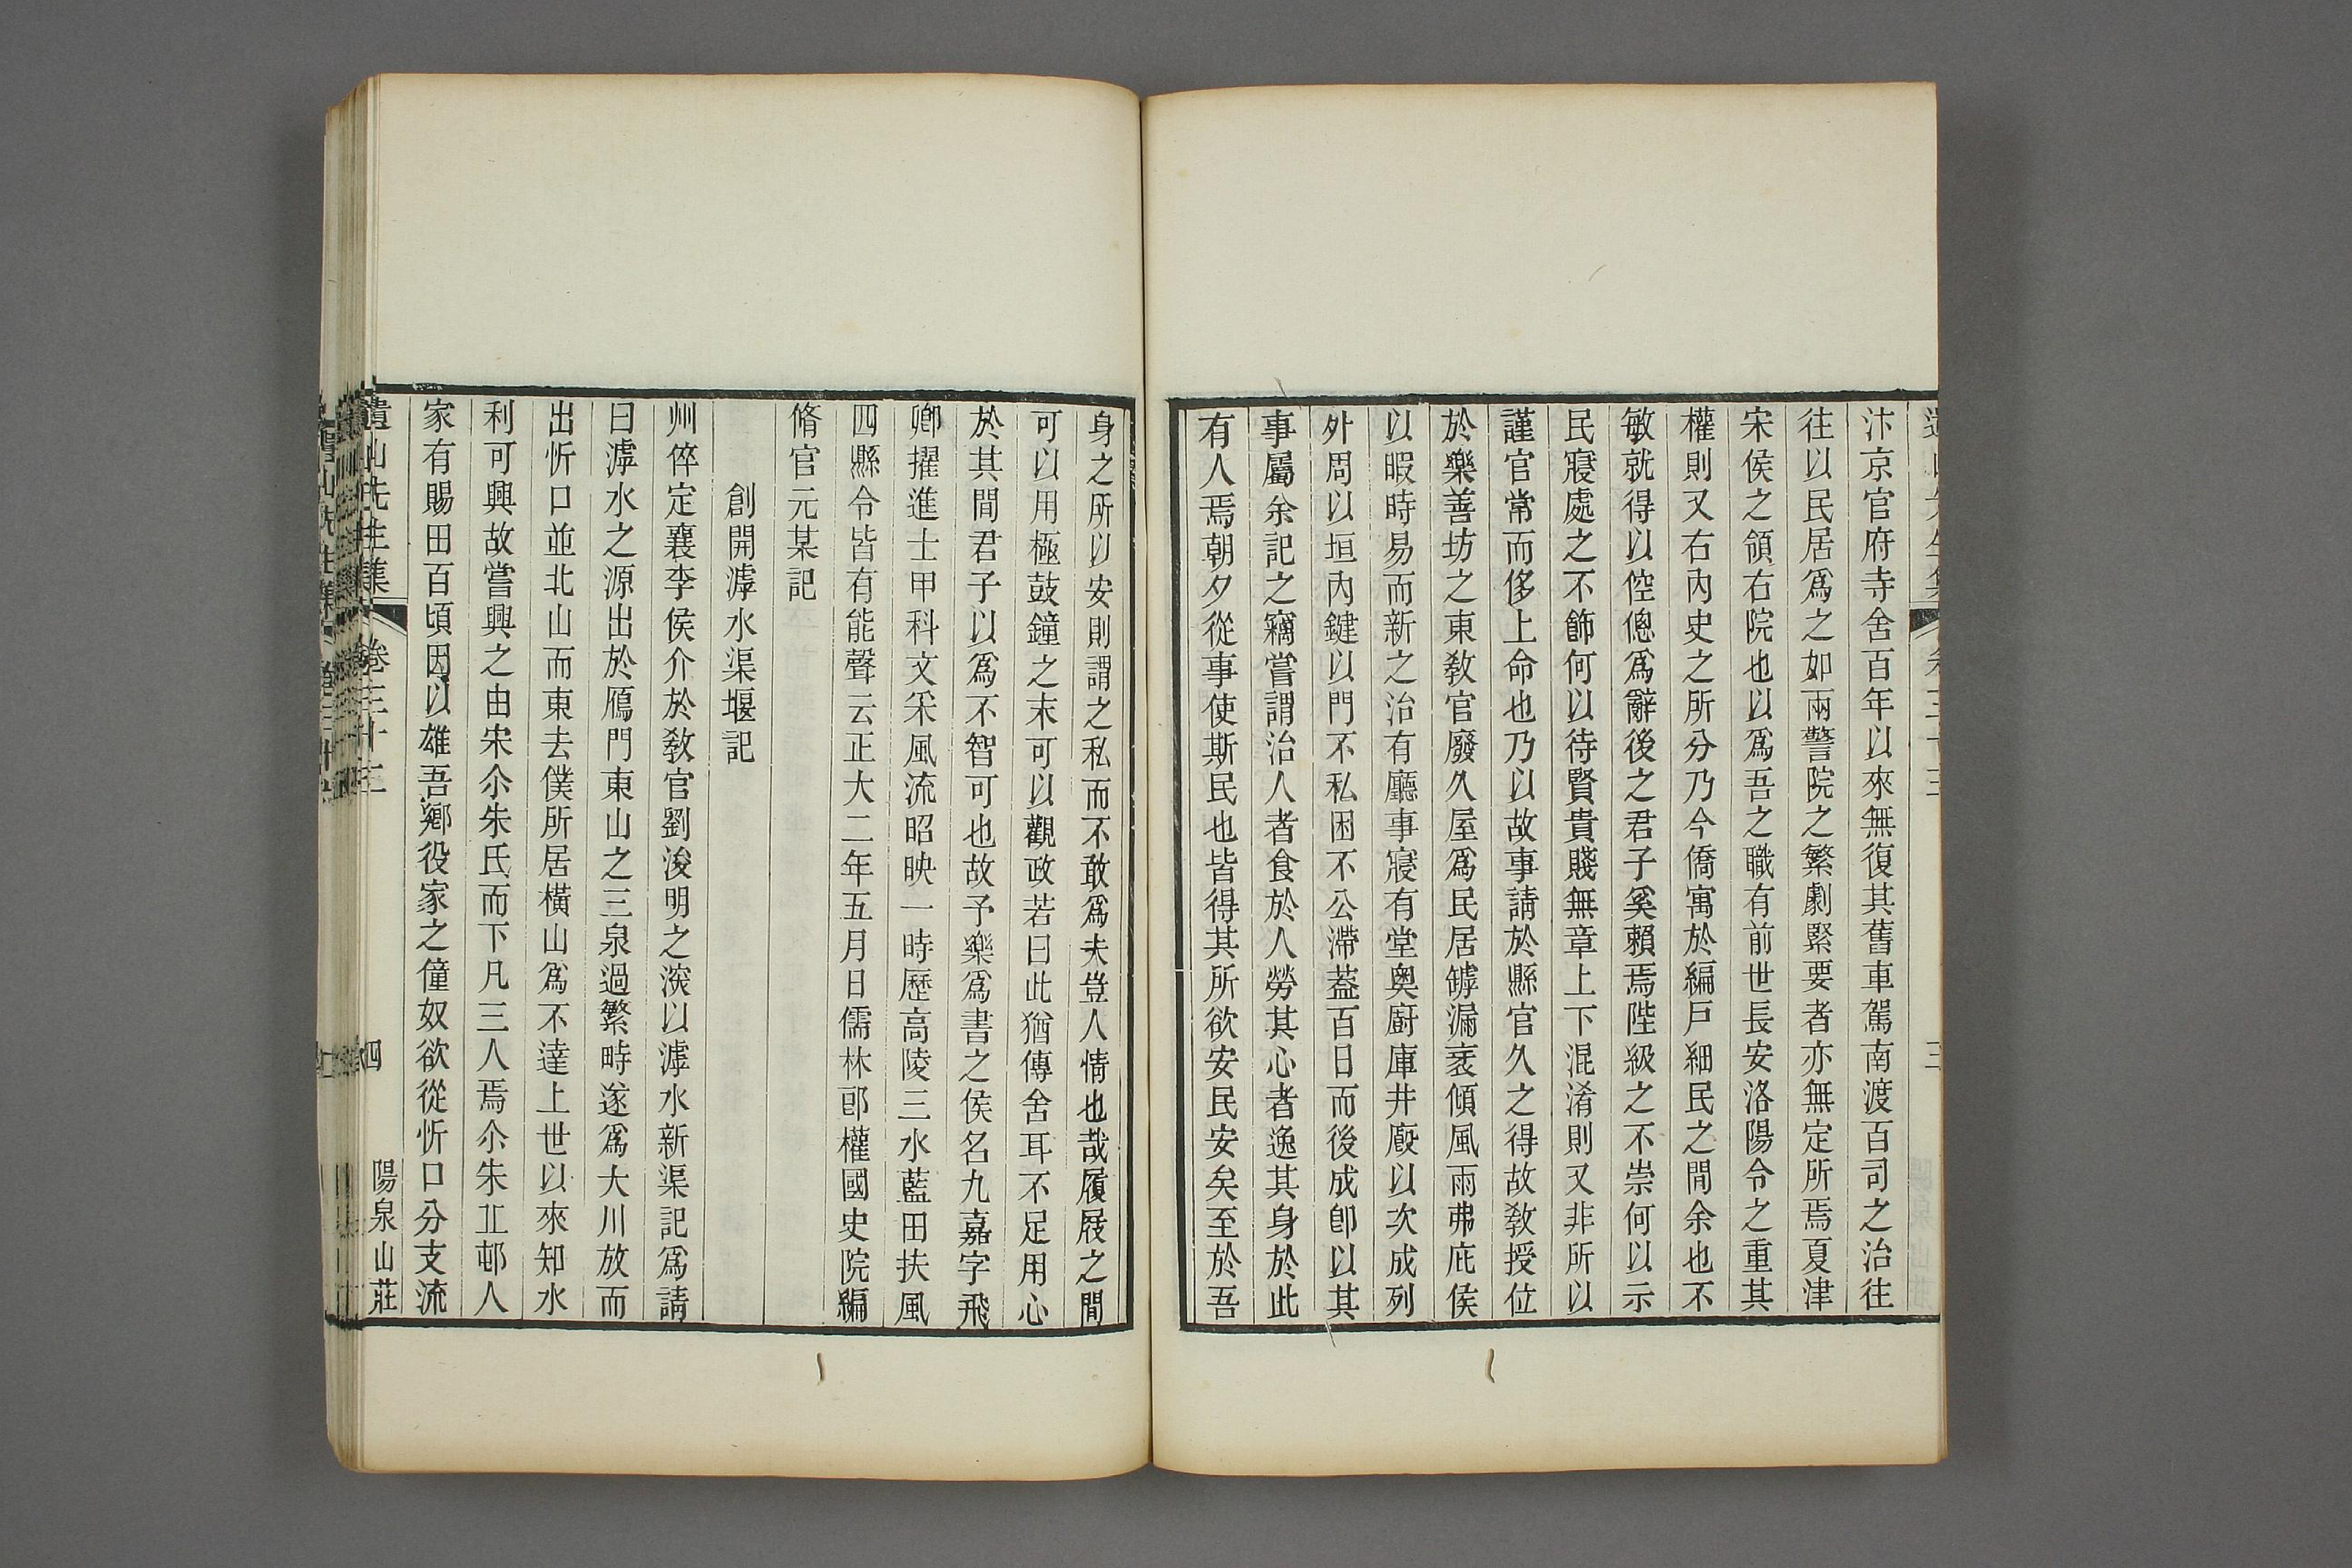 汴京官府寺舍百年以來無復其舊車駕南渡百司之治往
往以民居爲之如兩警院之繁劇緊要者亦無定所焉夏津
宋侯之領右院也以爲吾之職有前世長安洛陽令之重其
權則又右內史之所分乃今僑寓於編戸細民之間余也不
敏就得以倥傯爲辭後之君子奚賴焉陛級之不崇何以示
民寢處之不飾何以待賢貴賤無章上下混淆則又非所以
謹官常而侈上命也乃以故事請於縣官久之得故敎授位
於樂善坊之東敎官廢久屋爲民居罅漏衺傾風雨弗庇侯
以暇時易而新之治有廳事寢有堂奧廚庫井廏以次成列
外周以垣內鍵以門不私困不公滯葢百日而後成卽以其
事屬余記之竊嘗謂治人者食於人勞其心者逸其身於此
有人焉朝夕從事使斯民也皆得其所欲安民安矣至於吾
身之所以安則謂之私而不敢爲夫豈人情也哉履屐之間
可以用極鼓鐘之末可以觀政若曰此猶傳舍耳不足用心
於其間君子以爲不智可也故予樂爲書之侯名九嘉字飛
卿擢進士甲科文采風流昭映一時歷高陵三水藍田扶風
四縣令皆有能聲云正大二年五月日儒林郎權國史院編
脩官元某記
創開滹水渠堰記
州倅定襄李侯介於敎官劉浚明之深以滹水新渠記爲請
曰滹水之源出於鴈門東山之三泉過繁畤遂爲大川放而
出忻口並北山而東去僕所居橫山爲不達上世以來知水
利可興故嘗興之由宋尒朱氏而下凡三人焉尒朱丌邨人
家有賜田百頃因以雄吾鄕役家之僮奴欲從忻口分支流
遺山先生集 卷三十三 四 陽泉山莊